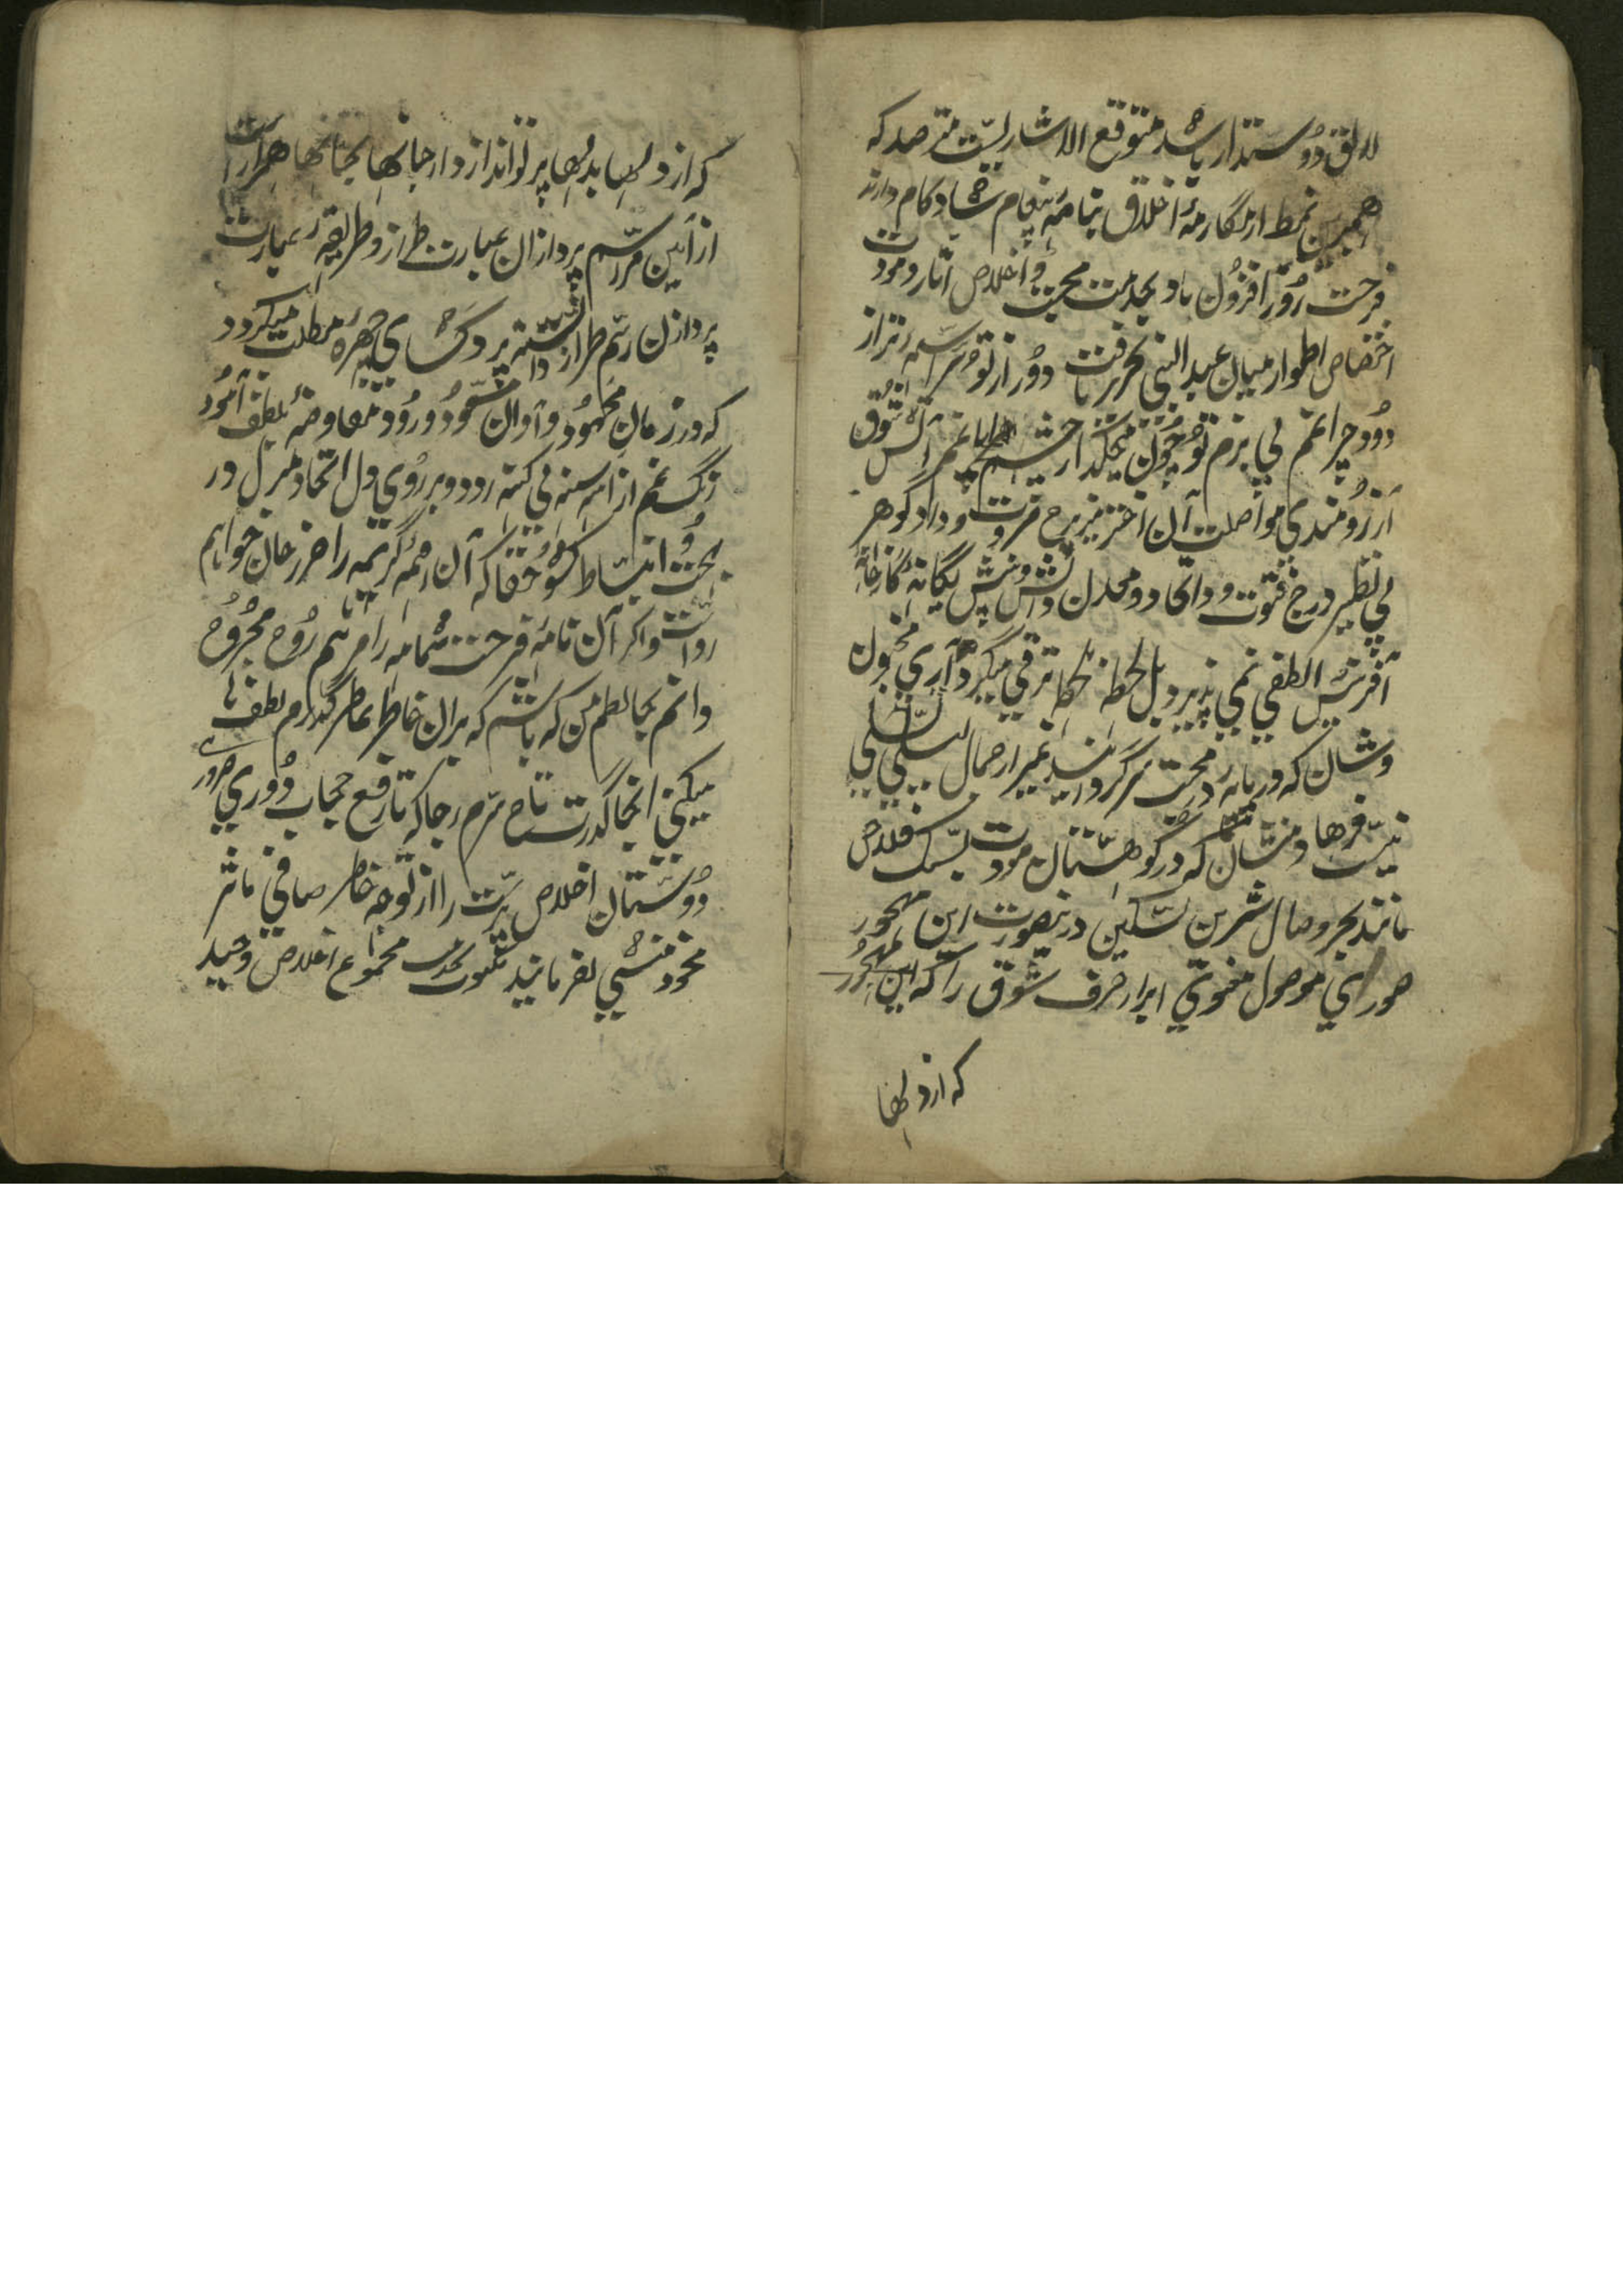 لایق دوستدار باشد متوقع الاشاریست مترصد که
همبرین نمط از مکارمهٔ اخلاق بنامه پیغام شاد کام دارند
فرحت روز افزون باد بخدمت محبت و اخلاص آثار و مودت
اختصاص اطوار میان عبد النبی تحریر یافت دور از تو
دود چراغم بی بزم تو چون میگذارد چشم آتش شوق
آرزومندی مواصلت آن اختر برج مروت و داد گوهر
بی نظیر درج فتوت و داتحاد و معدن دانش و بینش یگانهٔ کارخانهٔ
آفرینش الطفی نمی پذیرد بل لحظه لحظه ترقی میگیرد آری مجنون
وشان که در بادیه محبت سرگردانند غیر از جمال لیلی تسلی
نیست فرهاد منشان که در کوهستان مودت بسنگ فلاخن
مانند بجز وصال شیرین تسکین درینصورت این مهجور
صوری موصول معنوی ابراز حرف شوق را که این مهجور
که از دلها
که از دلها بدلها پرتو اندازد و از جانها بجانها همراز است
از آیین مراسم پردازان عبارت طراز و طریقهٔ عبارت
پردازن رسم طراز دانسته پرده کشای چهره مطلب میگردد
که در زمان محمود و آوان مسعود ورود معاوضهٔ بلطف آمود
زنگ غم از آیینه سینه بی کینه زدود و بر روی دل اتحاد منزل در
بهجت و انبساط کشود حقا که آن همه کریمه را حرز جان خوانم
رواست و اگر آن نامه فرحت شمامه را مرهم روح مجروح
دانم بجا لطم من که باشم که بران خاطر عاطر گذرم لطفها
میکنی انجا گذرت تاج سرم رجا که تا رفع حجاب دوری صوری
دوستان اخلاص پرست را از توجه خاطر صافی مآثر
خود منسی نفرمایند مکتوب بخدمت مجموع اخلاص وحید